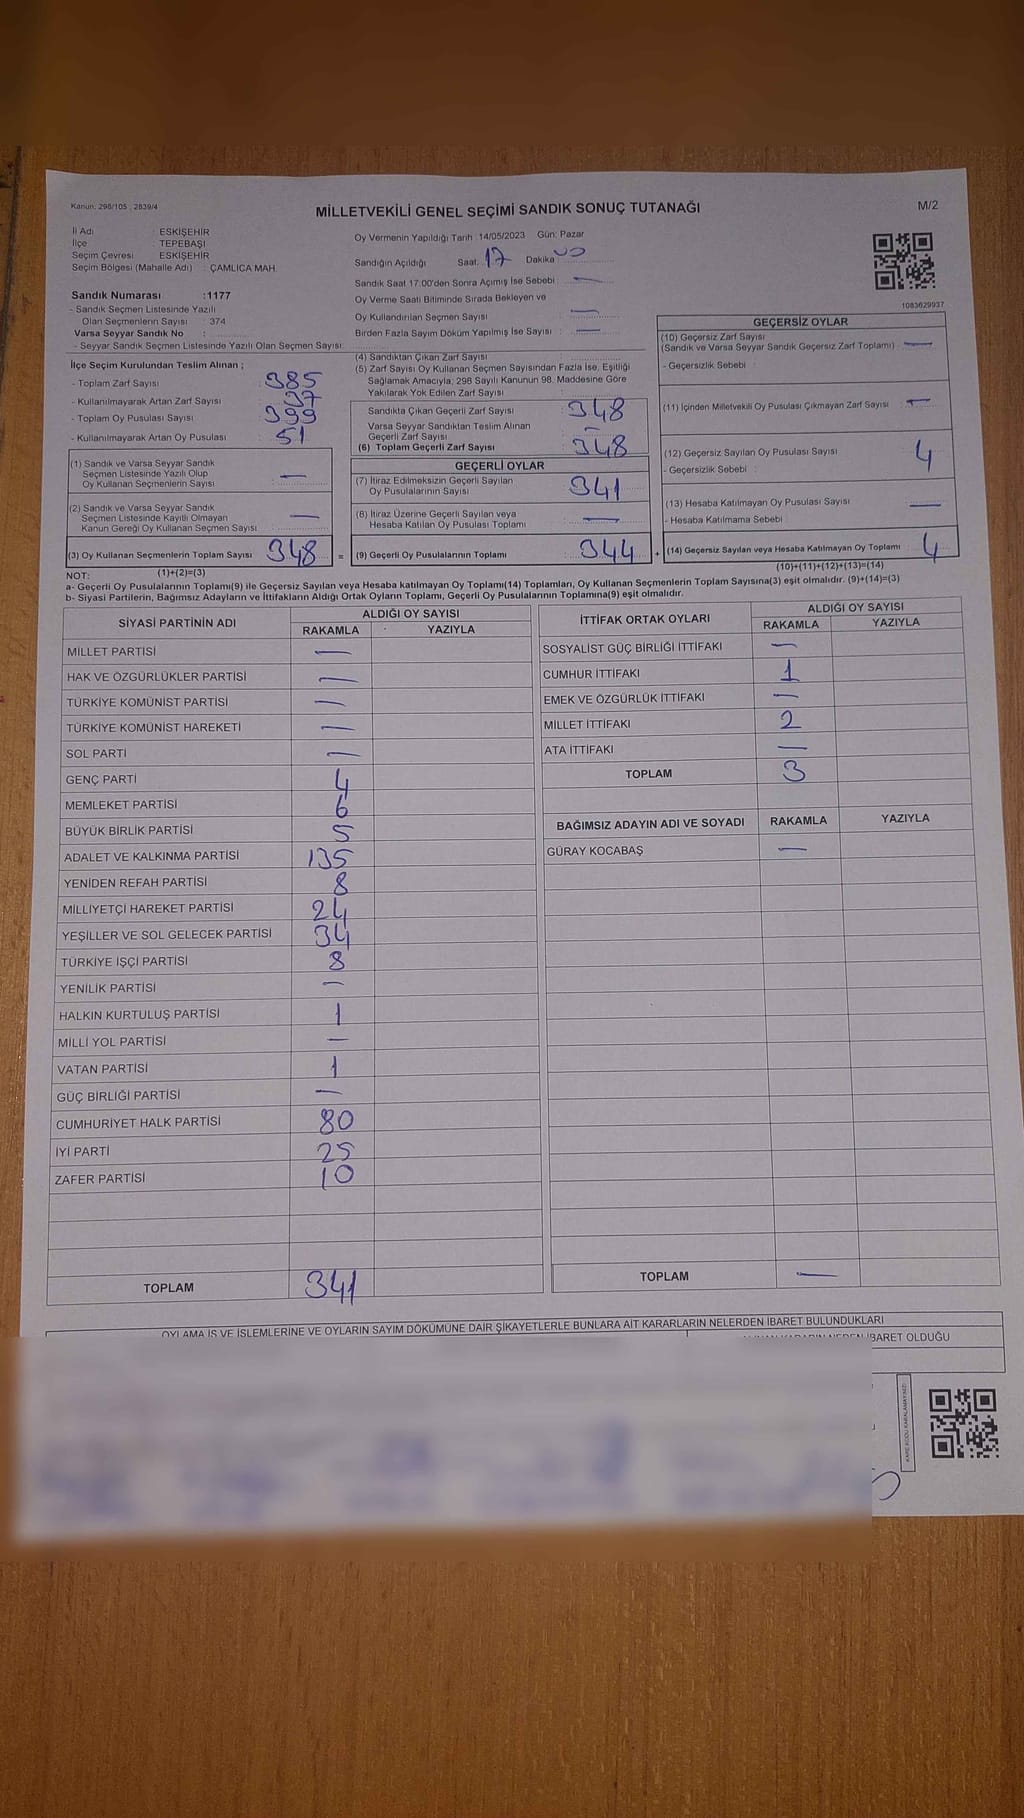 Kanun: 298/105 ; 2839/4
MİLLETVEKİLİ GENEL SEÇİMİ SANDIK SONUÇ TUTANAĞI
M/2
İl Adı ESKİŞEHİR
İlçe : TEPEBAŞI
Seçim Çevresi ESKİŞEHİR
Seçim Bölgesi (Mahalle Adı) : ÇAMLICA MAH.
Sandık Numarası :1177
- Sandık Seçmen Listesinde Yazılı
Olan Seçmenlerin Sayısı : 374
Varsa Seyyar Sandık No :
- Seyyar Sandık Seçmen Listesinde Yazılı Olan Seçmen Sayısı:
Oy Vermenin Yapıldığı Tarih 14/05/2023 Gün: Pazar
Sandığın Açıldığı Saat: 17 Dakika
Sandık Saat 17:00'den Sonra Açımış İse Sebebi —
Oy Verme Saati Bitiminde Sırada Bekleyen ve
Oy Kullandırılan Seçmen Sayısı —
Birden Fazla Sayım Döküm Yapılmış İse Sayısı : —
1083629937
İlçe Seçim Kurulundan Teslim Alınan ;
- Toplam Zarf Sayısı : 385
- Kullanılmayarak Artan Zarf Sayısı : 37
- Toplam Oy Pusulası Sayısı : 399
- Kullanılmayarak Artan Oy Pusulası : 51
(1) Sandık ve Varsa Seyyar Sandık
Seçmen Listesinde Yazılı Olup
Oy Kullanan Seçmenlerin Sayısı : —
(2) Sandık ve Varsa Seyyar Sandık
Seçmen Listesinde Kayıtlı Olmayan
Kanun Gereği Oy Kullanan Seçmen Sayısı —
(3) Oy Kullanan Seçmenlerin Toplam Sayısı 348 =
(1)+(2)=(3)
(4) Sandıktan Çıkan Zarf Sayısı :
(5) Zarf Sayısı Oy Kullanan Seçmen Sayısından Fazla İse, Eşitliği
Sağlamak Amacıyla, 298 Sayılı Kanunun 98. Maddesine Göre
Yakılarak Yok Edilen Zarf Sayısı
Sandıkta Çıkan Geçerli Zarf Sayısı : 348
Varsa Seyyar Sandıktan Teslim Alınan
Geçerli Zarf Sayısı : —
(6) Toplam Geçerli Zarf Sayısı : 348
GEÇERLİ OYLAR
(7) İtiraz Edilmeksizin Geçerli Sayılan
Oy Pusulalarının Sayısı : 341
(8) İtiraz Üzerine Geçerli Sayılan veya
Hesaba Katılan Oy Pusulası Toplamı : —
(9) Geçerli Oy Pusulalarının Toplamı : 344 +
GEÇERSİZ OYLAR
(10) Geçersiz Zarf Sayısı
(Sandık ve Varsa Seyyar Sandık Geçersiz Zarf Toplamı) : —
- Geçersizlik Sebebi :
(11) İçinden Milletvekili Oy Pusulası Çıkmayan Zarf Sayısı : —
(12) Geçersiz Sayılan Oy Pusulası Sayısı : 4
- Geçersizlik Sebebi :
(13) Hesaba Katılmayan Oy Pusulası Sayısı : —
- Hesaba Katılmama Sebebi :
(14) Geçersiz Sayılan veya Hesaba Katılmayan Oy Toplamı : 4
(10)+(11)+(12)+(13)=(14)
NOT:
a- Geçerli Oy Pusulalarının Toplamı(9) ile Geçersiz Sayılan veya Hesaba katılmayan Oy Toplamı(14) Toplamları, Oy Kullanan Seçmenlerin Toplam Sayısına(3) eşit olmalıdır. (9)+(14)=(3)
b- Siyasi Partilerin, Bağımsız Adayların ve İttifakların Aldığı Ortak Oyların Toplamı, Geçerli Oy Pusulalarının Toplamına(9) eşit olmalıdır.
SİYASİ PARTİNİN ADI ALDIĞI OY SAYISI
RAKAMLA YAZIYLA
MİLLET PARTİSİ —
HAK VE ÖZGÜRLÜKLER PARTİSİ —
TÜRKİYE KOMÜNİST PARTİSİ —
TÜRKİYE KOMÜNİST HAREKETİ —
SOL PARTİ —
GENÇ PARTİ 4
MEMLEKET PARTİSİ 6
BÜYÜK BİRLİK PARTİSİ 5
ADALET VE KALKINMA PARTİSİ 135
YENİDEN REFAH PARTİSİ 8
MİLLİYETÇİ HAREKET PARTİSİ 24
YEŞİLLER VE SOL GELECEK PARTİSİ 34
TÜRKİYE İŞÇİ PARTİSİ 8
YENİLİK PARTİSİ —
HALKIN KURTULUŞ PARTİSİ 1
MİLLİ YOL PARTİSİ —
VATAN PARTİSİ 1
GÜÇ BİRLİĞİ PARTİSİ —
CUMHURİYET HALK PARTİSİ 80
İYİ PARTİ 25
ZAFER PARTİSİ 10
TOPLAM 341
İTTİFAK ORTAK OYLARI ALDIĞI OY SAYISI
RAKAMLA YAZIYLA
SOSYALİST GÜÇ BİRLİĞİ İTTİFAKI —
CUMHUR İTTİFAKI 1
EMEK VE ÖZGÜRLÜK İTTİFAKI —
MİLLET İTTİFAKI 2
ATA İTTİFAKI —
TOPLAM 3
BAĞIMSIZ ADAYIN ADI VE SOYADI RAKAMLA YAZIYLA
GÜRAY KOCABAŞ —
TOPLAM —
OYLAMA İŞ VE İŞLEMLERİNE VE OYLARIN SAYIM DÖKÜMÜNE DAİR ŞİKAYETLERLE BUNLARA AİT KARARLARIN NELERDEN İBARET BULUNDUKLARI
KARARIN NEDEN İBARET OLDUĞU
KARE KODU KARALAMAYINIZ!